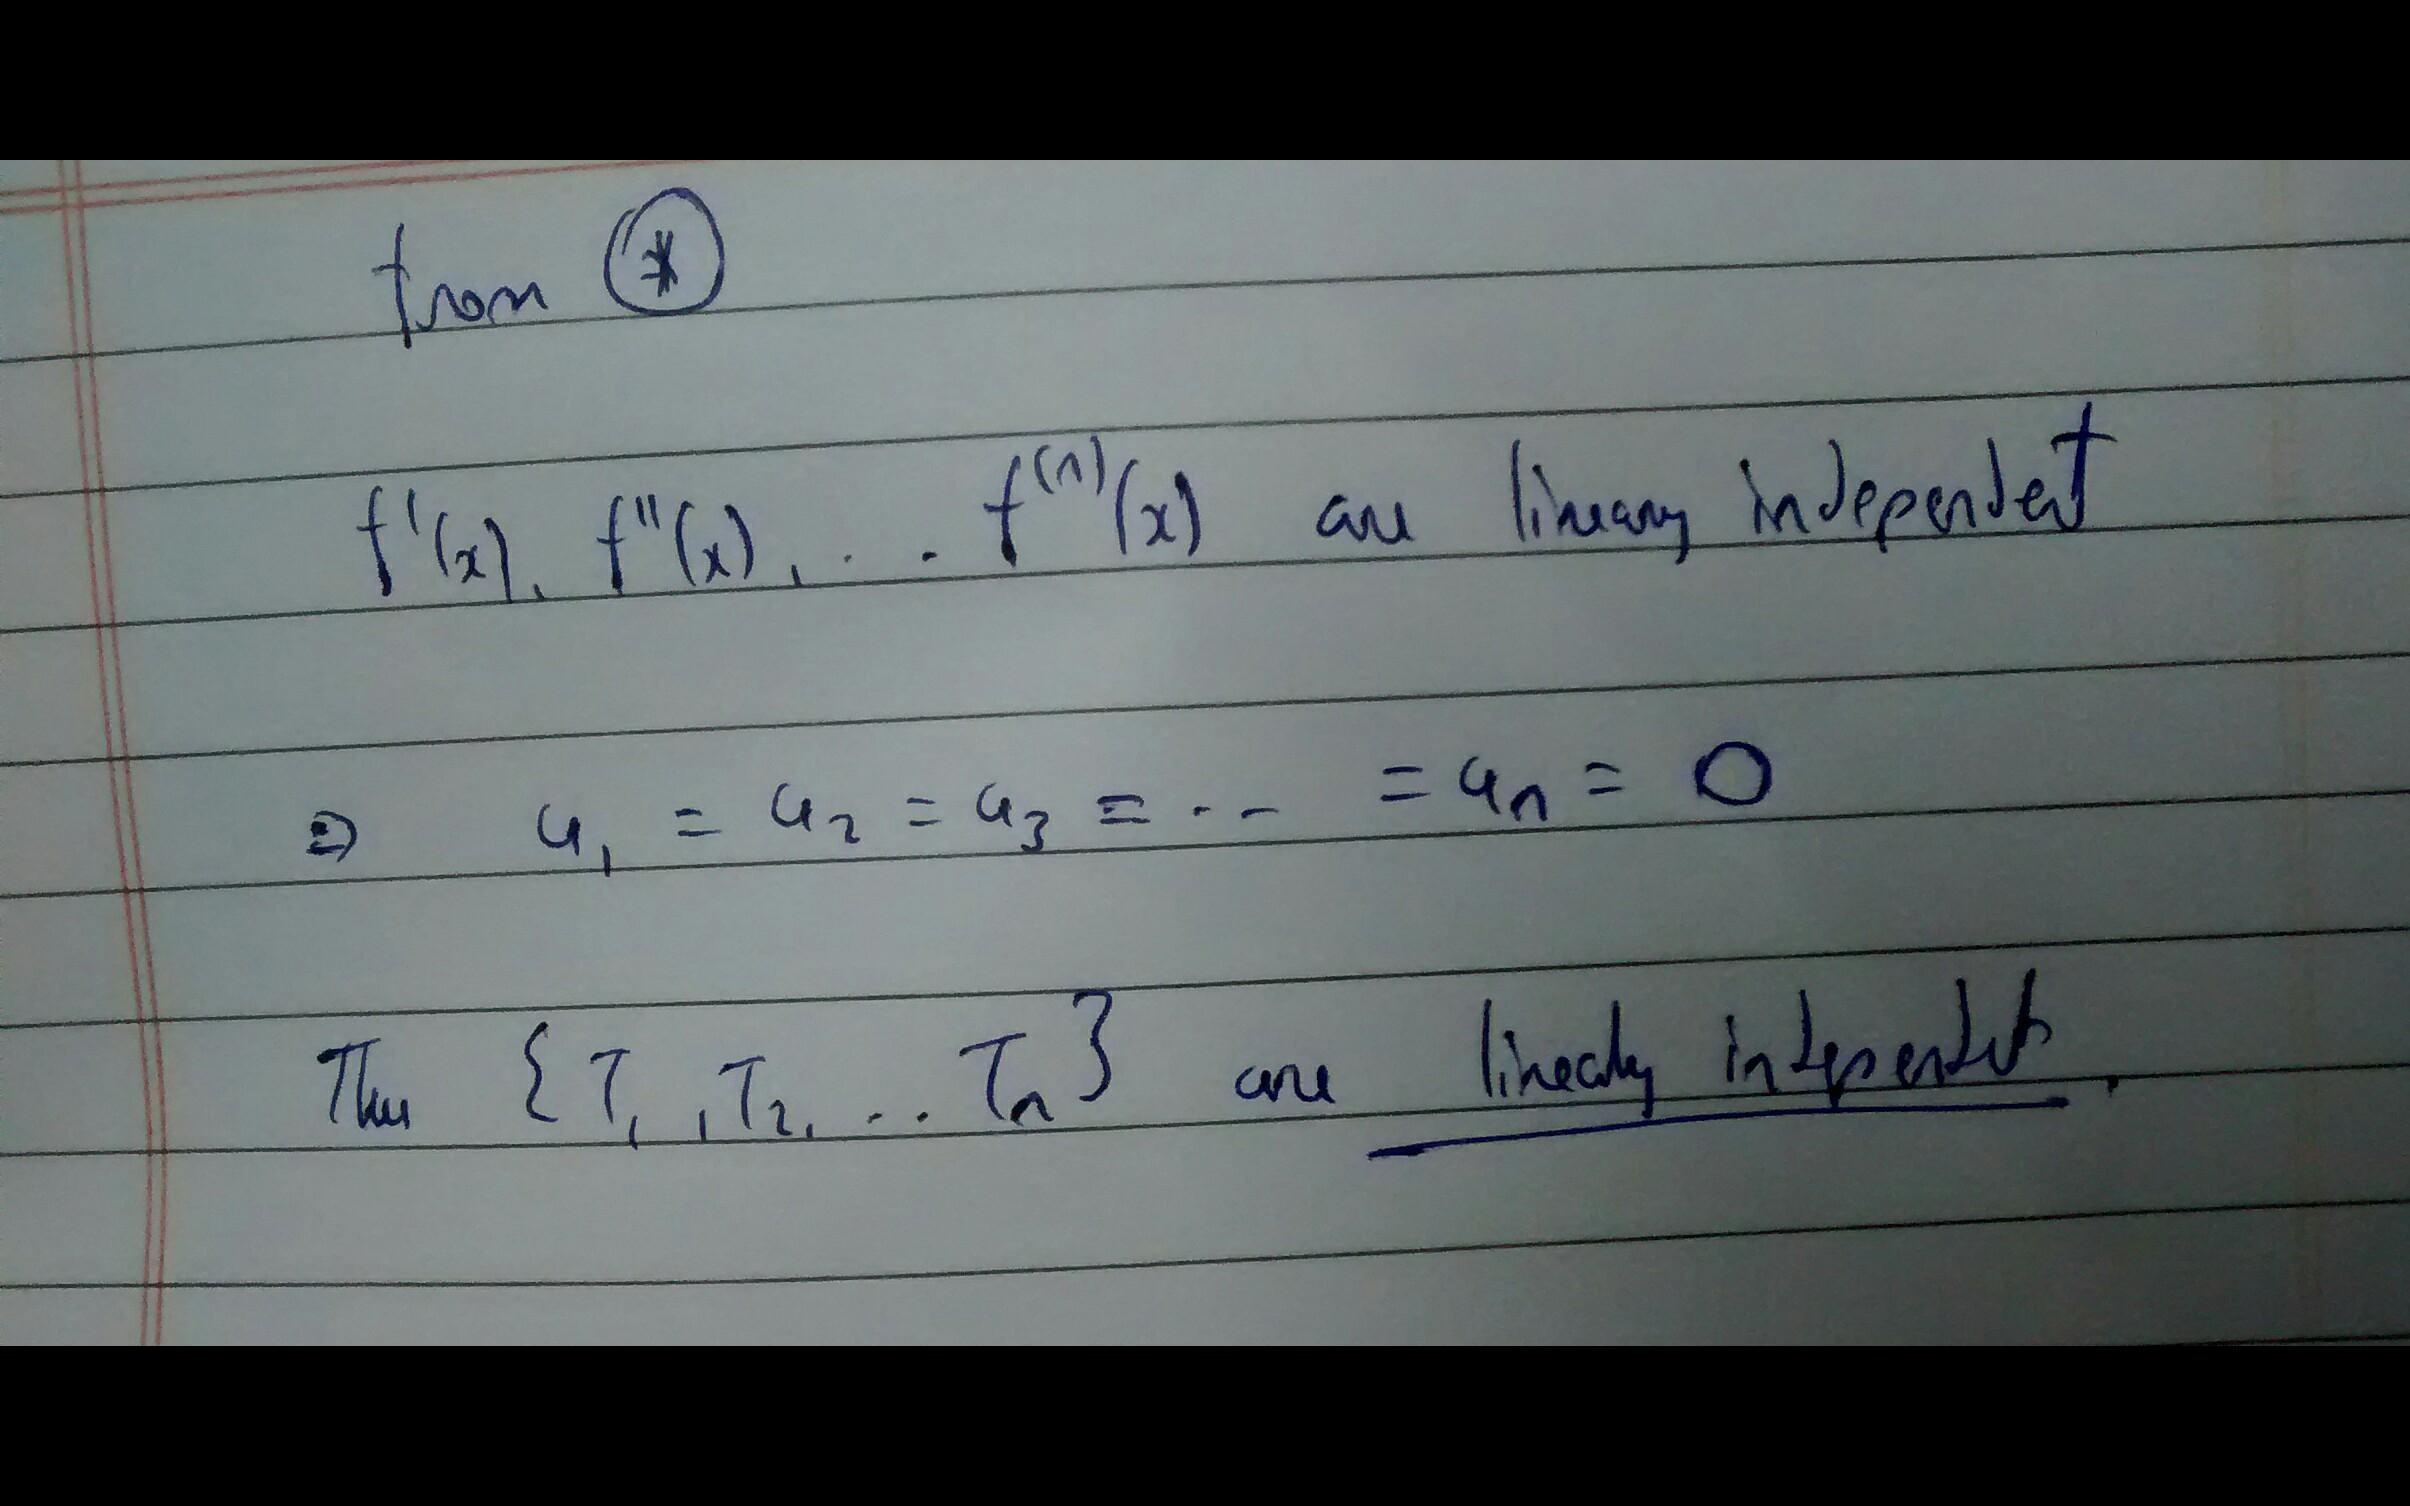 from (*)
f'(x), f''(x), ... f^(n)(x) are lineary independent
⇒ a₁ = a₂ = a₃ = ... = aₙ = 0
Thus {T₁, T₂, ... Tₙ} are linearly independent.